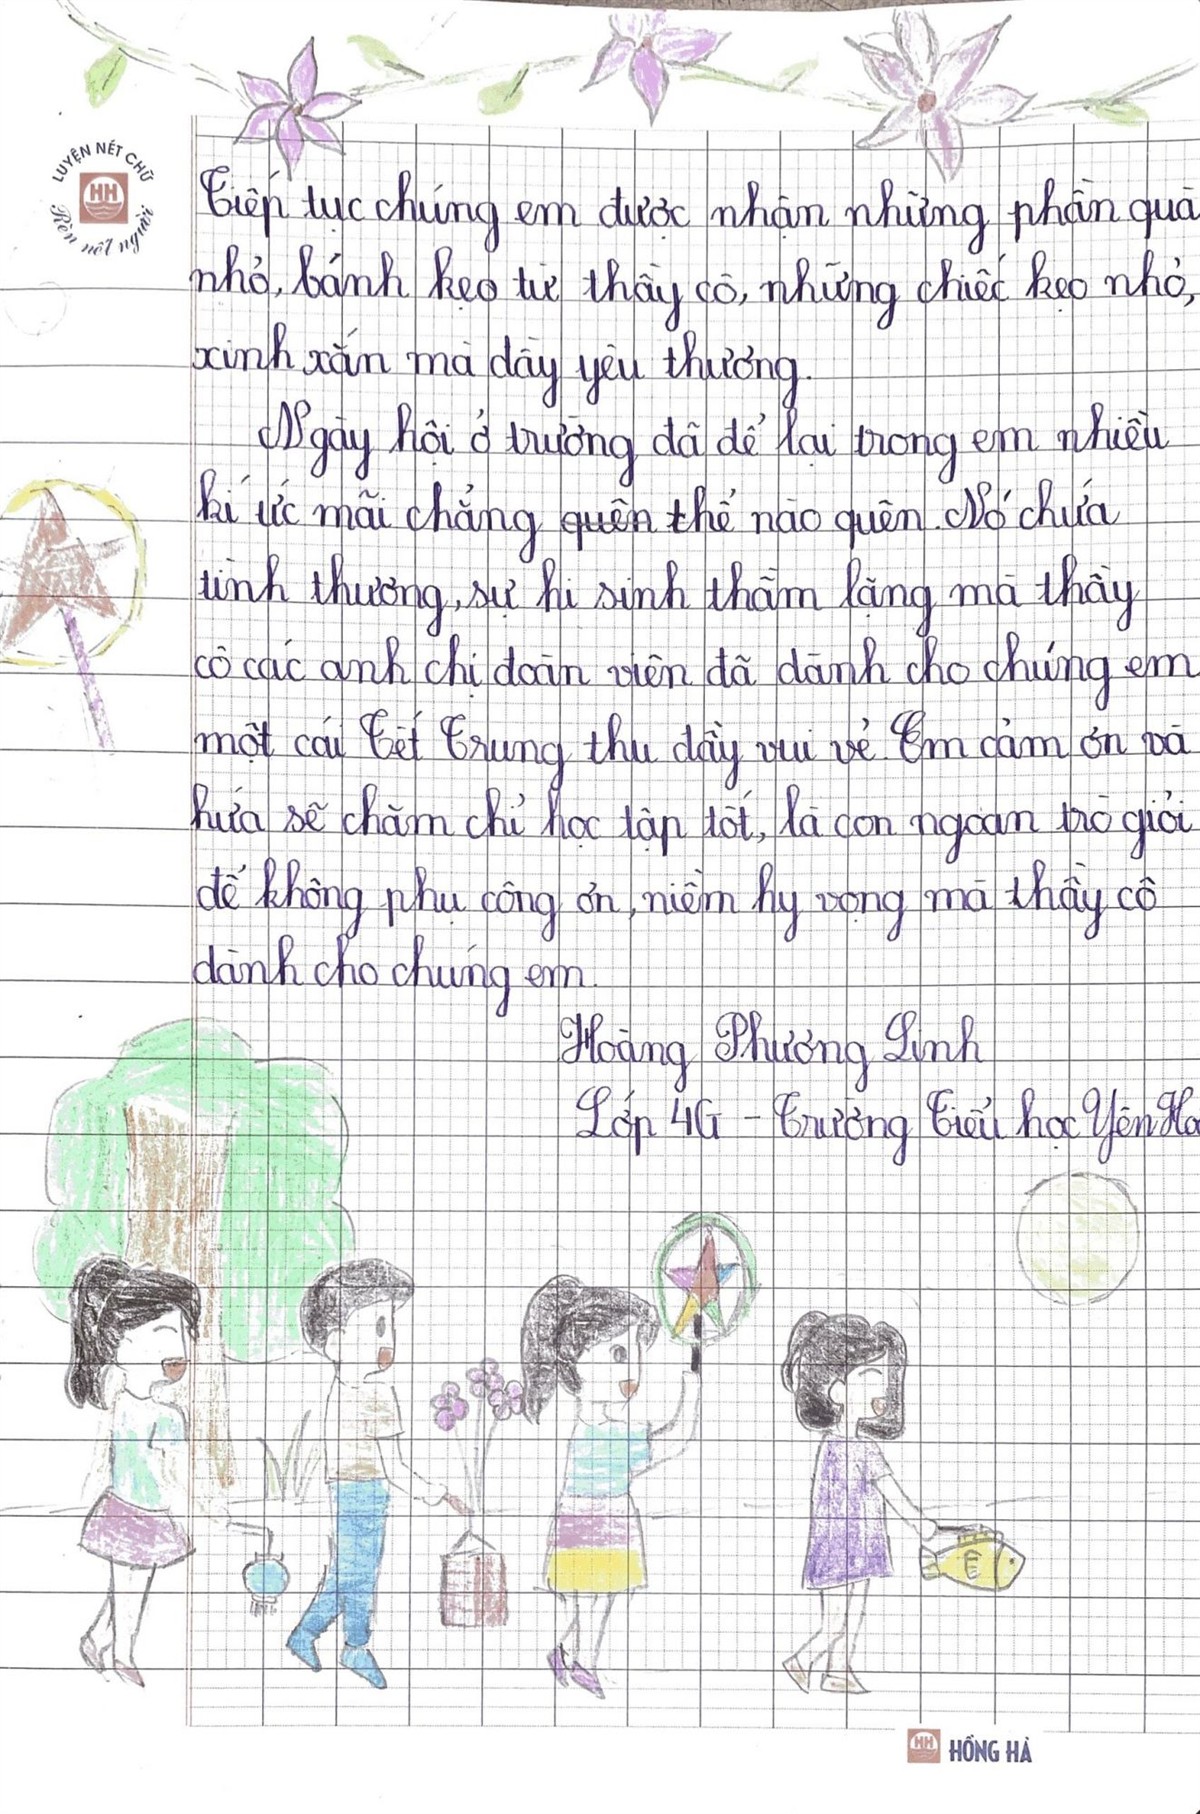 LUYỆN NÉT CHỮ
HH
Rèn nết người
Tiếp tục chúng em được nhận những phần quà
nhỏ, bánh kẹo từ thầy cô, những chiếc kẹo nhỏ,
xinh xắn mà đầy yêu thương.
Ngày hội ở trường đã để lại trong em nhiều
kí ức mãi chẳng quên thể nào quên. Nó chứa
tình thương, sự hi sinh thầm lặng mà thầy
cô các anh chị đoàn viên đã dành cho chúng em
một cái Tết Trung thu đầy vui vẻ. Em cảm ơn và
hứa sẽ chăm chỉ học tập tốt, là con ngoan trò giỏi
để không phụ công ơn, niềm hy vọng mà thầy cô
dành cho chúng em.
Hoàng Phương Linh
Lớp 4G - Trường Tiểu học Yên Ho
HH HỒNG HÀ